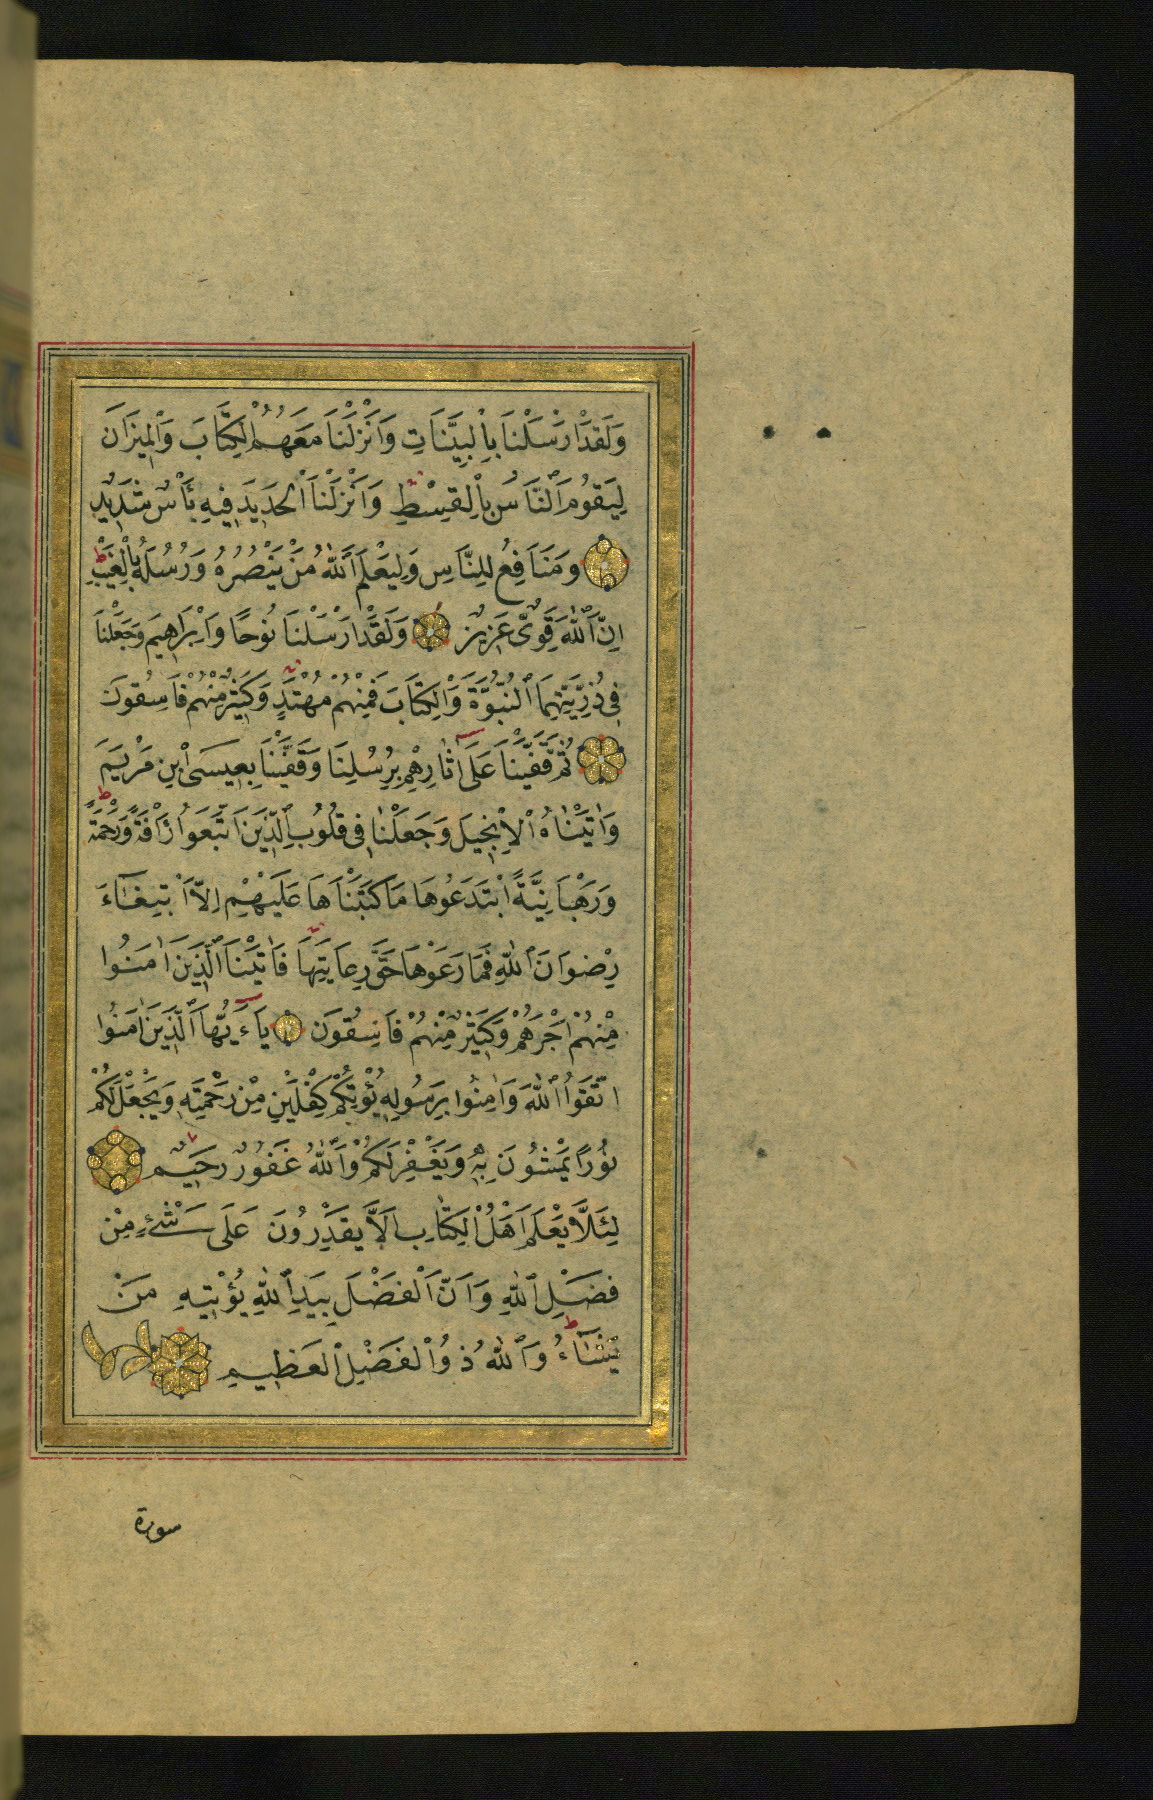 وَلَقَدْ اَرْسَلْنَا بِالْبَيِّنَاتِ وَاَنْزَلْنَا مَعَهُمُ الْكِتَابَ وَالْمِيزَانَ
لِيَقُومَ النَّاسُ بِالْقِسْطِ وَاَنْزَلْنَا الْحَدِيدَ فِيهِ بَأْسٌ شَدِيدٌ
وَمَنَافِعُ لِلنَّاسِ وَلِيَعْلَمَ اللّٰهُ مَنْ يَنْصُرُهُ وَرُسُلَهُ بِالْغَيْبِ
اِنَّ اللّٰهَ قَوِىٌّ عَزِيزٌ وَلَقَدْ اَرْسَلْنَا نُوحًا وَاِبْرَاهِيمَ وَجَعَلْنَا
فِى ذُرِّيَّتِهِمَا النُّبُوَّةَ وَالْكِتَابَ فَمِنْهُمْ مُهْتَدٍ وَكَثِيرٌ مِنْهُمْ فَاسِقُونَ
ثُمَّ قَفَّيْنَا عَلَى اٰثَارِهِمْ بِرُسُلِنَا وَقَفَّيْنَا بِعِيسَى ابْنِ مَرْيَمَ
وَاٰتَيْنَاهُ الْاِنْجِيلَ وَجَعَلْنَا فِى قُلُوبِ الَّذِينَ اتَّبَعُوا رَاْفَةً وَرَحْمَةً
وَرَهْبَانِيَّةً ابْتَدَعُوهَا مَا كَتَبْنَاهَا عَلَيْهِمْ اِلَّا ابْتِغَاءَ
رِضْوَانِ اللّٰهِ فَمَا رَعَوْهَا حَقَّ رِعَايَتِهَا فَاٰتَيْنَا الَّذِينَ اٰمَنُوا
مِنْهُمْ اَجْرَهُمْ وَكَثِيرٌ مِنْهُمْ فَاسِقُونَ يَاءَيُّهَا الَّذِينَ اٰمَنُوا
اتَّقُوا اللّٰهَ وَاٰمِنُوا بِرَسُولِهِ يُؤْتِكُمْ كِفْلَيْنِ مِنْ رَحْمَتِهِ وَيَجْعَلْ لَكُمْ
نُورًا تَمْشُونَ بِهِ وَيَغْفِرْ لَكُمْ وَاللّٰهُ غَفُورٌ رَحِيمٌ
لِئَلَّا يَعْلَمَ اَهْلُ الْكِتَابِ اَلَّا يَقْدِرُونَ عَلَى شَىْءٍ مِنْ
فَضْلِ اللّٰهِ وَاَنَّ الْفَضْلَ بِيَدِ اللّٰهِ يُؤْتِيهِ مَنْ
يَشَاءُ وَاللّٰهُ ذُو الْفَضْلِ الْعَظِيمِ
سورة